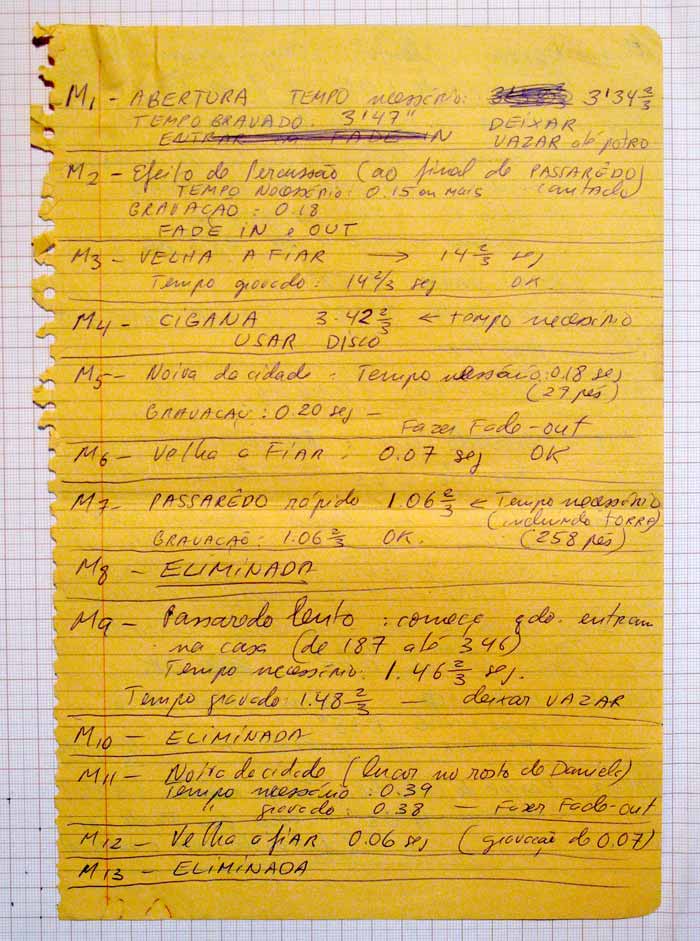 M1 - ABERTURA TEMPO necessário: 3'34 2/3
TEMPO GRAVADO: 3'47" DEIXAR
ENTRAR FADE IN VAZAR até potro
M2 - Efeito de Percussão (ao final de PASSARÊDO
TEMPO NECESSÁRIO: 0.15 ou mais cantado)
GRAVAÇÃO: 0.18
FADE IN e OUT
M3 - VELHA A FIAR → 14 2/3 seg
Tempo gravado: 14 2/3 seg OK.
M4 - CIGANA 3.42 2/3 ← tempo necessário
USAR DISCO
M5 - Noiva da cidade: Tempo necessário: 0.18 seg
(29 pés)
GRAVAÇÃO: 0.20 seg -
Fazer Fade-out
M6 - Velha a FIAR: 0.07 seg OK
M7 - PASSARÊDO rápido 1.06 2/3 ← Tempo necessário
(incluindo FORRÓ)
GRAVAÇÃO: 1.06 2/3 OK. (258 pés)
M8 - ELIMINADA
M9 - Passaredo lento: começa qdo. entram
na casa (de 187 até 346)
Tempo necessário: 1.46 2/3 seg.
Tempo gravado: 1.48 2/3 - deixar VAZAR
M10 - ELIMINADA
M11 - Noiva da cidade ( no rosto de Daniela)
Tempo necessário: 0.39
" gravado: 0.38 - Fazer Fade-out
M12 - Velha a fiAR 0.06 seg (gravação de 0.07)
M13 - ELIMINADA